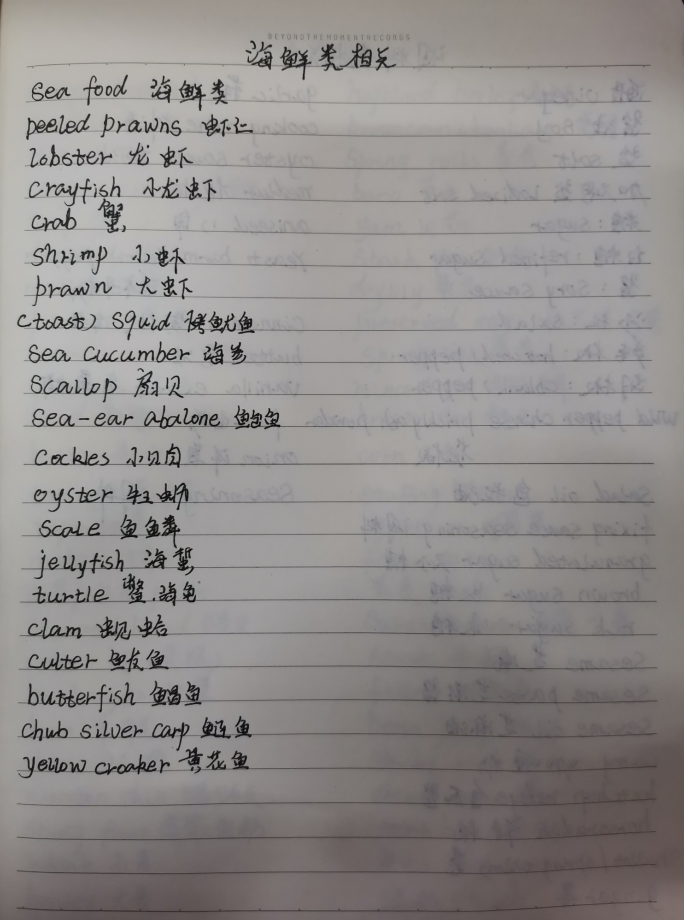 BEYONDTHEMOMENTRECORDS
海鲜类相关
sea food 海鲜类
peeled prawns 虾仁
lobster 龙虾
crayfish 小龙虾
crab 蟹
shrimp 小虾
prawn 大虾
(toast) squid 烤鱿鱼
sea cucumber 海参
scallop 扇贝
sea-ear abalone 鲍鱼
cockles 小贝肉
oyster 牡蛎
scale 鱼鳞
jellyfish 海蜇
turtle 鳖.海龟
clam 蚬蛤
culter 鲅鱼
butterfish 鲳鱼
chub silver carp 鲢鱼
yellow croaker 黄花鱼